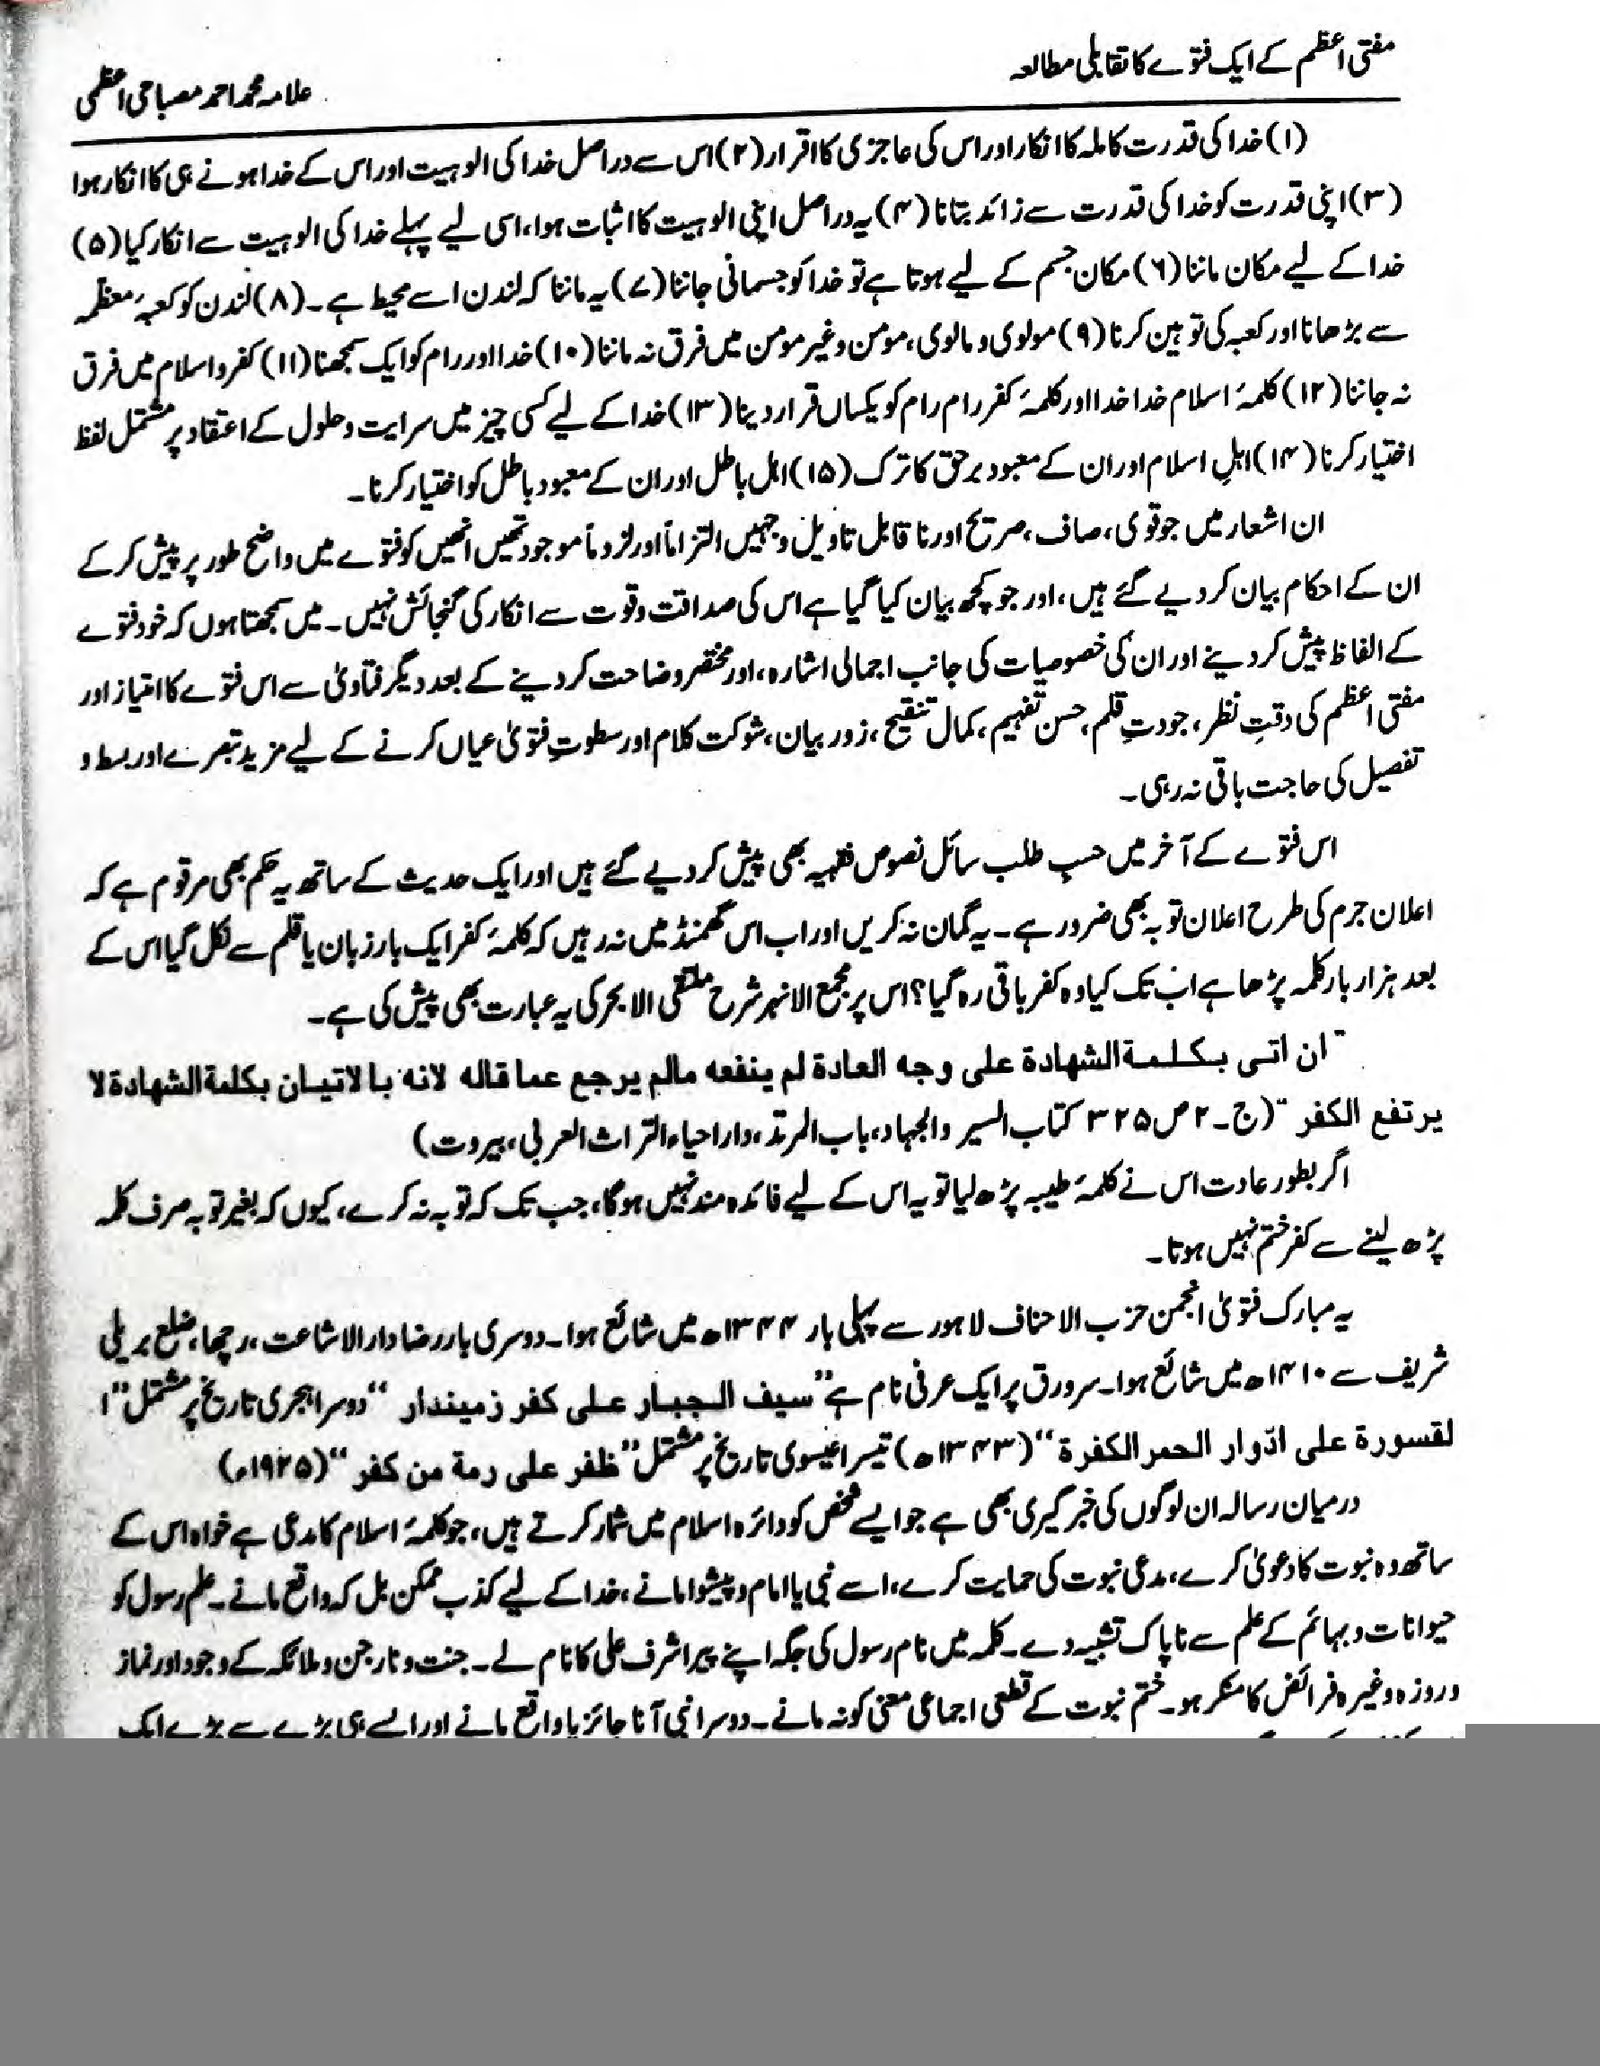 مفتی اعظم کے ایک فتوے کا تقابلی مطالعہ
علامہ محمد احمد مصباحی اعظمی
(۱) خدا کی قدرت کاملہ کا انکار اور اس کی عاجزی کا اقرار (۲) اس سے دراصل خدا کی الوہیت اور اس کے خدا ہونے ہی کا انکار ہوا
(۳) اپنی قدرت کو خدا کی قدرت سے زائد بتانا (۴) یہ دراصل اپنی الوہیت کا اثبات ہوا، اسی لیے پہلے خدا کی الوہیت سے انکار کیا (۵)
خدا کے لیے مکان ماننا (۶) مکان جسم کے لیے ہوتا ہے تو خدا کو جسمانی جاننا (۷) یہ ماننا کہ لندن اسے محیط ہے۔ (۸) لندن کو کعبۂ معظمہ
سے بڑھانا اور کعبہ کی توہین کرنا (۹) مولوی و مالوی، مومن و غیر مومن میں فرق نہ ماننا (۱۰) خدا اور رام کو ایک سمجھنا (۱۱) کفر و اسلام میں فرق
نہ جاننا (۱۲) کلمۂ اسلام خدا خدا اور کلمۂ کفر رام رام کو یکساں قرار دینا (۱۳) خدا کے لیے کسی چیز میں سرایت و حلول کے اعتقاد پر مشتمل لفظ
اختیار کرنا (۱۴) اہلِ اسلام اور ان کے معبود برحق کا ترک (۱۵) اہل باطل اور ان کے معبود باطل کو اختیار کرنا۔
ان اشعار میں جو قوی، صاف، صریح اور نا قابل تاویل وجہیں التزاماً اور لزوماً موجود تھیں انھیں کو فتوے میں واضح طور پر پیش کر کے
ان کے احکام بیان کر دیے گئے ہیں، اور جو کچھ بیان کیا گیا ہے اس کی صداقت و قوت سے انکار کی گنجائش نہیں۔ میں سمجھتا ہوں کہ خود فتوے
کے الفاظ پیش کر دینے اور ان کی خصوصیات کی جانب اجمالی اشارہ، اور مختصر وضاحت کر دینے کے بعد دیگر فتاویٰ سے اس فتوے کا امتیاز اور
مفتی اعظم کی دقتِ نظر، جودتِ قلم، حسن تفہیم، کمال تنقیح، زور بیان، شوکت کلام اور سطوتِ فتویٰ عیاں کرنے کے لیے مزید تبصرے اور بسط و
تفصیل کی حاجت باقی نہ رہی۔
اس فتوے کے آخر میں حسبِ طلب سائل نصوص فقہیہ بھی پیش کر دیے گئے ہیں اور ایک حدیث کے ساتھ یہ حکم بھی مرقوم ہے کہ
اعلان جرم کی طرح اعلان توبہ بھی ضرور ہے۔ یہ گمان نہ کریں اور اب اس گھمنڈ میں نہ رہیں کہ کلمۂ کفر ایک بار زبان یا قلم سے نکل گیا اس کے
بعد ہزار بار کلمہ پڑھا ہے اب تک کیا وہ کفر باقی رہ گیا؟ اس پر مجمع الانہر شرح ملتقی الابحر کی یہ عبارت بھی پیش کی ہے۔
"ان اتی بکلمة الشهادة علی وجه العادة لم ینفعه مالم یرجع عما قاله لانه بالاتیان بکلمة الشهادة لا
یرتفع الکفر" (ج۔۲ ص ۳۲۵ کتاب السیر والجہاد، باب المرتد، دار احیاء التراث العربی، بیروت)
اگر بطور عادت اس نے کلمۂ طیبہ پڑھ لیا تو یہ اس کے لیے فائدہ مند نہیں ہوگا، جب تک کہ توبہ نہ کرے، کیوں کہ بغیر توبہ صرف کلمہ
پڑھ لینے سے کفر ختم نہیں ہوتا۔
یہ مبارک فتویٰ انجمن حزب الاحناف لاہور سے پہلی بار ۱۳۴۴ھ میں شائع ہوا۔ دوسری بار رضا دارالاشاعت، رچھا، ضلع بریلی
شریف سے ۱۴۱۰ھ میں شائع ہوا۔ سرورق پر ایک عرفی نام ہے "سیف الجبار علی کفر زمیندار" دوسرا ہجری تاریخ پر مشتمل "ا
لقسورة علی ادّوار الحمر الکفرة" (۱۳۴۳ھ) تیسرا عیسوی تاریخ پر مشتمل "ظفر علی رمة من کفر" (۱۹۲۵ء)
درمیان رسالہ ان لوگوں کی خبر گیری بھی ہے جو ایسے شخص کو دائرہ اسلام میں شمار کرتے ہیں، جو کلمۂ اسلام کا مدعی ہے خواہ اس کے
ساتھ وہ نبوت کا دعویٰ کرے، مدعی نبوت کی حمایت کرے، اسے نبی یا امام و پیشوا مانے، خدا کے لیے کذب ممکن بل کہ واقع مانے۔ علم رسول کو
حیوانات و بہائم کے علم سے ناپاک تشبیہ دے۔ کلمہ میں نام رسول کی جگہ اپنے پیر اشرف علی کا نام لے۔ جنت و نار جن و ملائکہ کے وجود اور نماز
و روزہ وغیرہ فرائض کا منکر ہو۔ ختم نبوت کے قطعی اجماعی معنی کو نہ مانے۔ دوسرا نبی آنا جائز یا واقع مانے اور ایسے ہی بڑے سے بڑے ایک